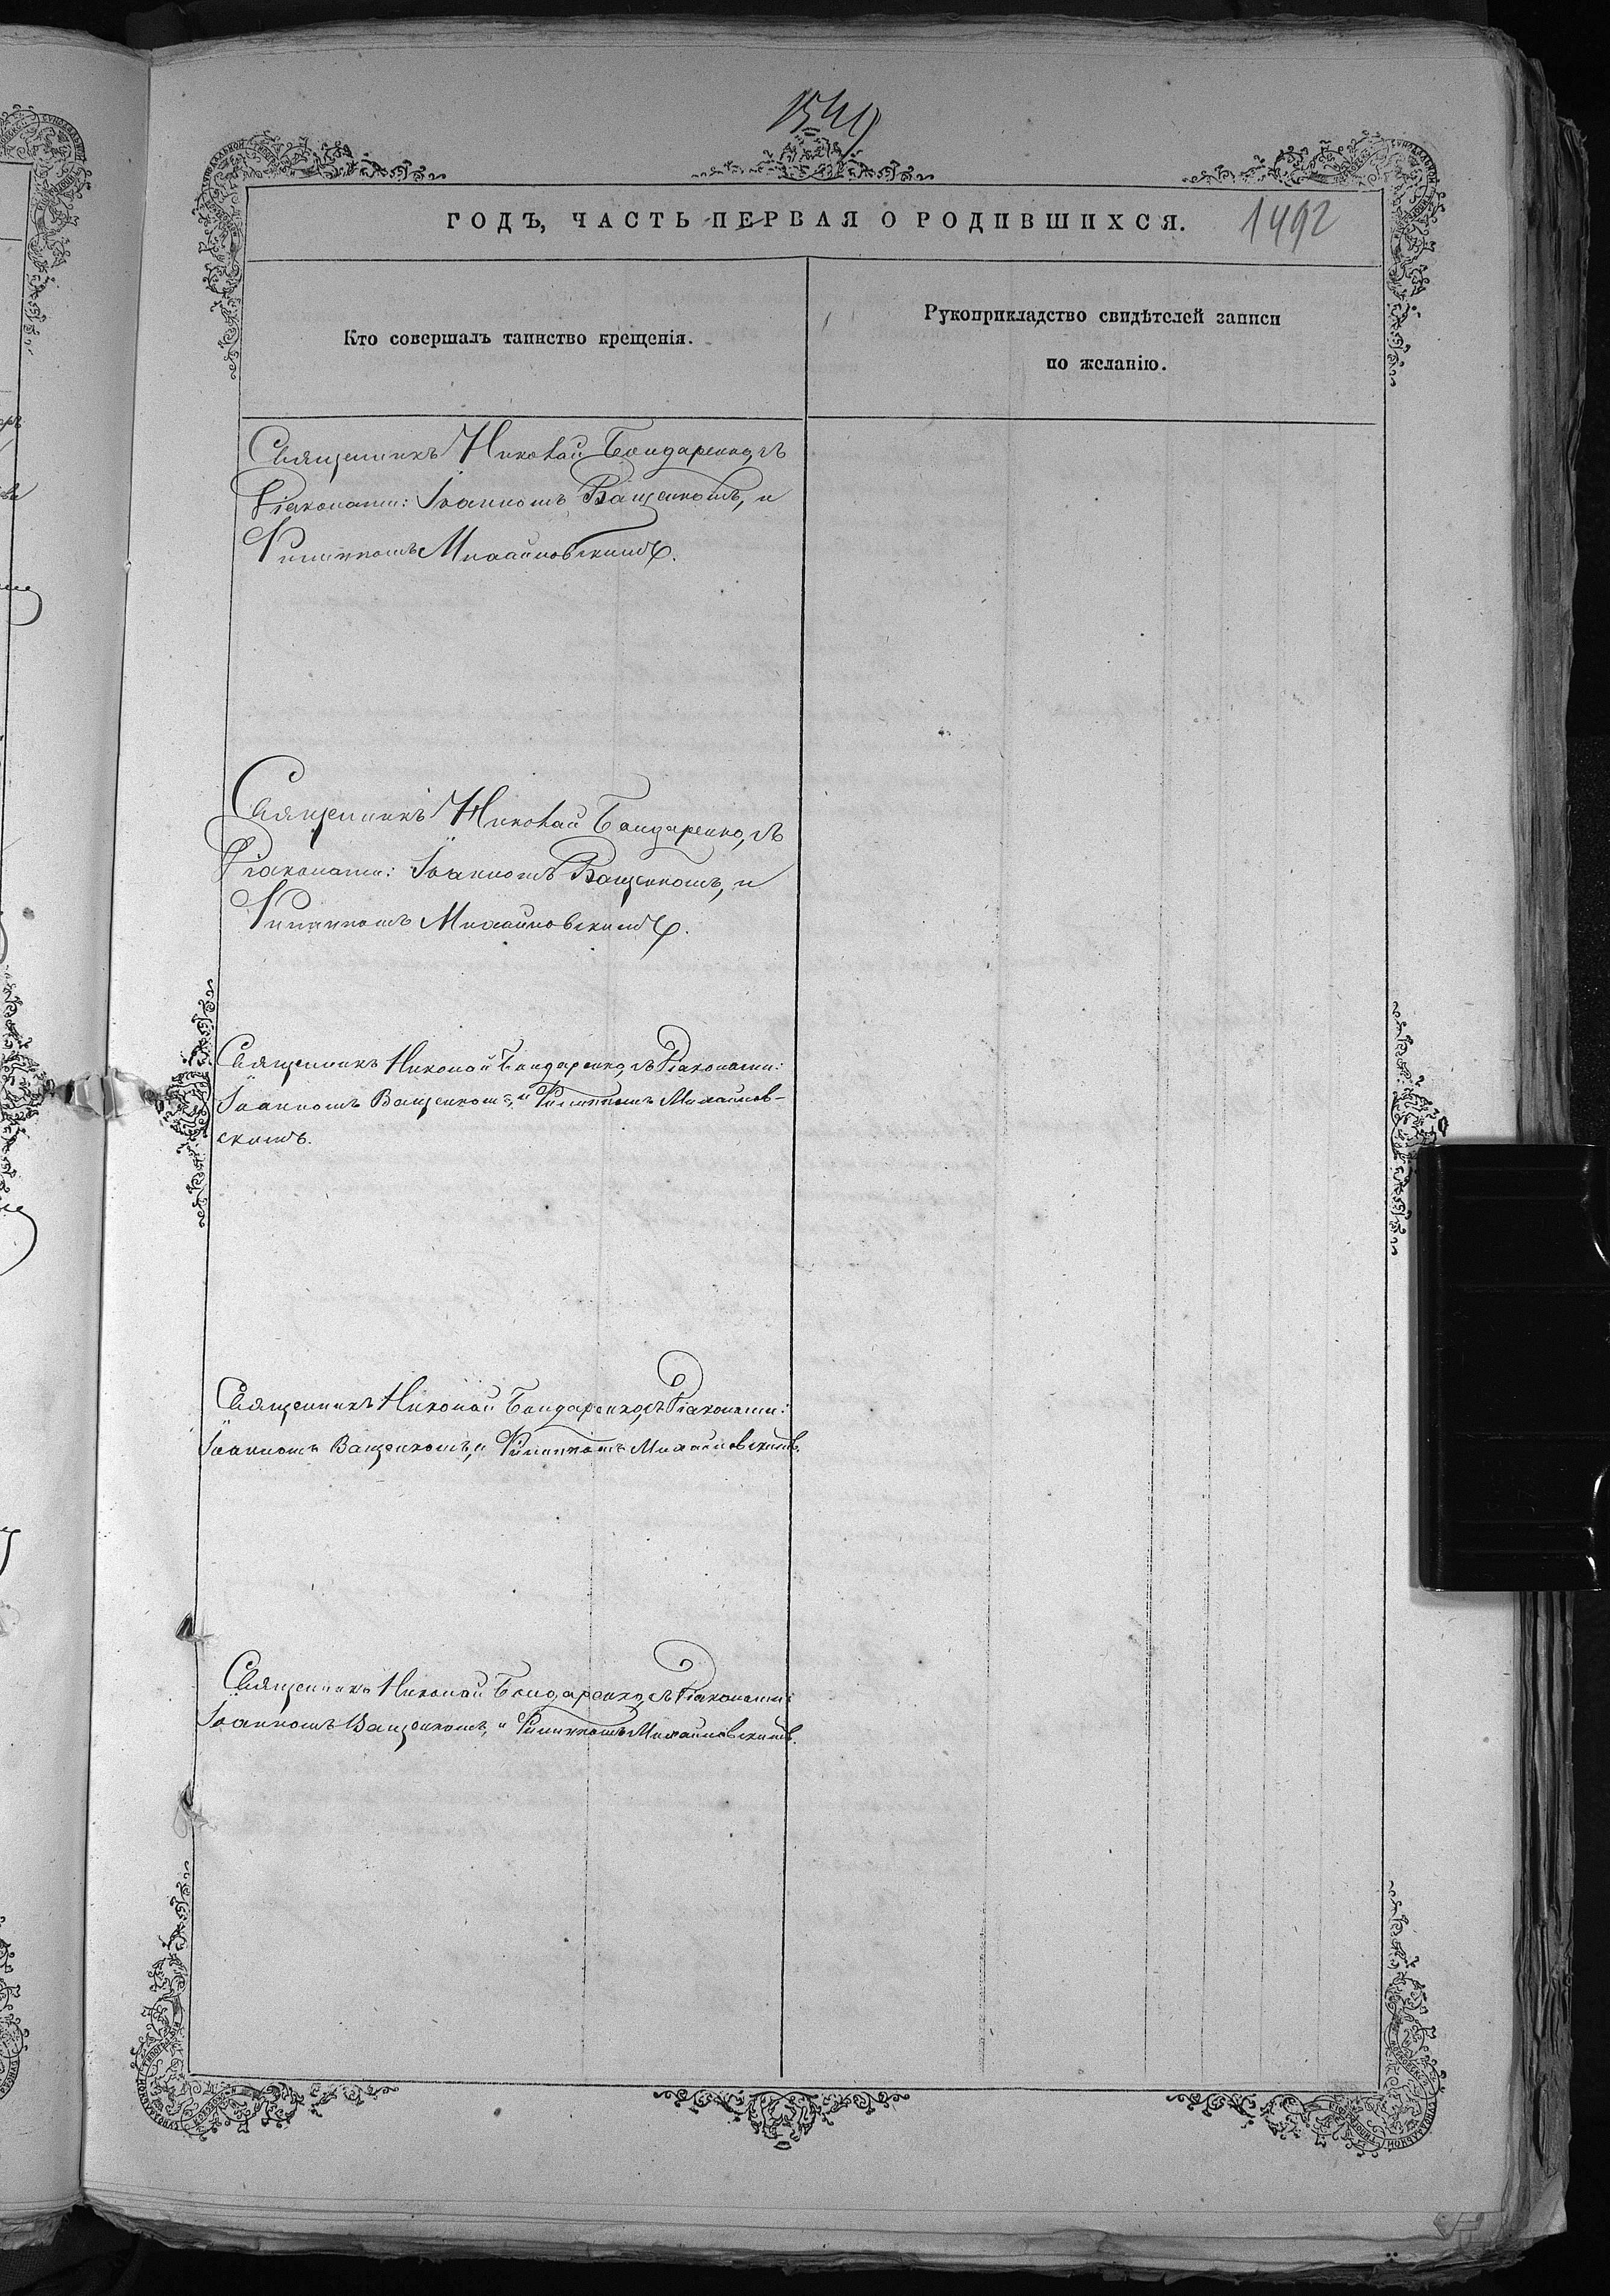 1549
ГОДЪ, ЧАСТЬ ПЕРВАЯ О РОДИВШИХСЯ. 1492
Кто совершалъ таинство крещенія.
Рукоприкладство свидѣтелей записи
по желанію.
Священникъ Николай Бондаренко, съ
Діаконами: Іоанномъ Ващенкомъ, и
Филиппомъ Михайловскимъ.
Священникъ Николай Бондаренко, съ
Діаконами: Іоанномъ Ващенкомъ, и
Филиппомъ Михайловскимъ.
Священникъ Николай Бондаренко, съ Діаконами:
Іоанномъ Ващенкомъ, и Филиппомъ Михайлов-
скимъ.
Священникъ Николай Бондаренко, съ Діаконами:
Іоанномъ Ващенкомъ, и Филиппомъ Михайловскимъ.
Священникъ Николай Бондаренко, съ Діаконами:
Іоанномъ Ващенкомъ, и Филиппомъ Михайловскимъ.